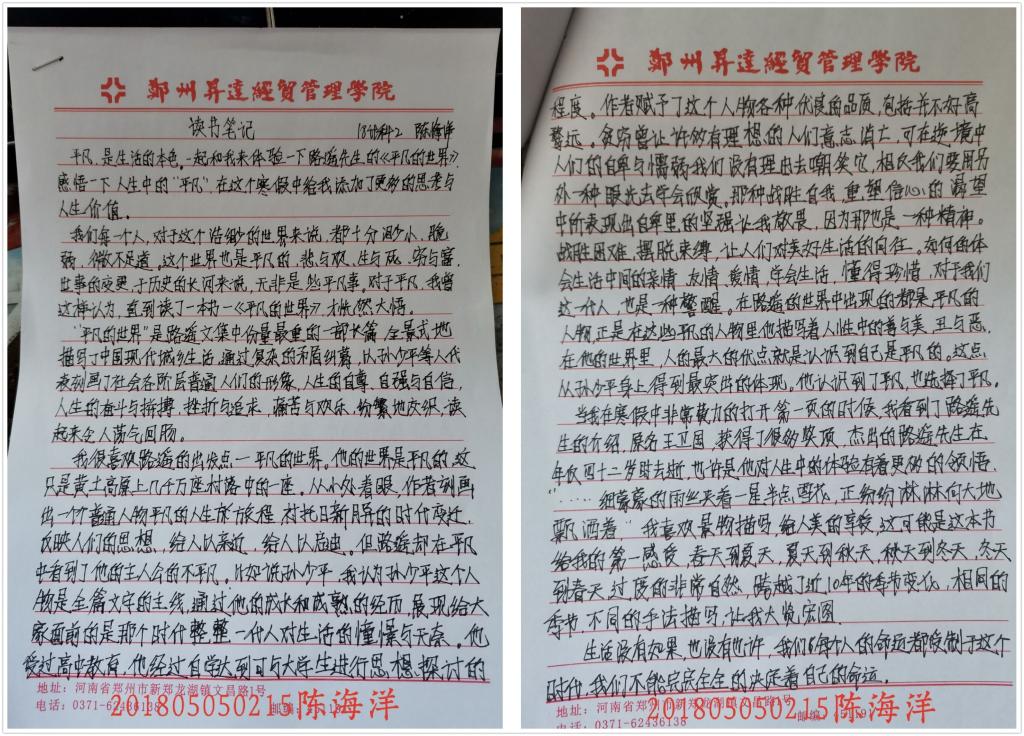 郑州昇達經贸管理学院
读书笔记 18物科2 陈海洋
平凡,是生活的本色。一起和我来体验一下路遥先生的《平凡的世界》,
感悟一下人生中的“平凡”。在这个寒假中给我添加了更多的思考与
人生价值。
我们每一个人,对于这个浩渺的世界来说,都十分渺小、脆
弱、微不足道。这个世界也是平凡的,悲与欢、生与死、穷与富、
世事的变更,于历史的长河来说,无非是些平凡事,对于平凡,我曾
这样认为,直到读了一本书—《平凡的世界》才恍然大悟。
“平凡的世界”是路遥文集中份量最重的一部长篇,全景式地
描写了中国现代城乡生活,通过复杂的矛盾纠葛,以孙少平等人代
表刻画了社会各阶层普通人们的形象,人生的自尊、自强与自信,
人生的奋斗与拼搏,挫折与追求,痛苦与欢乐,纷繁地交织,读
起来令人荡气回肠。
我很喜欢路遥的出发点—平凡的世界。他的世界是平凡的,这
只是黄土高原上几千万座村落中的一座。从小处着眼,作者刻画
出一个个普通人物平凡的人生旅程,衬托日新月异的时代变迁,
反映人们的思想,给人以亲近,给人以启由。但路遥却在平凡
中看到了他的主人公的不平凡。比如说孙少平,我认为孙少平这个人
物是全篇文字的主线,通过他的成长和成熟的经历,展现给大
家面前的是那个时代整整一代人对生活的憧憬与无奈。他
受过高中教育,他经过自学达到可与大学生进行思想探讨的
地址:河南省郑州市新郑龙湖镇文昌路1号
电话:0371-62436138 邮编:
201805050215陈海洋
郑州昇達經贸管理学院
程度。作者赋予了这个人物各种优良的品质,包括并不好高
骛远。贫穷曾让许多有理想的人们意志消亡,可在逆境中
人们的自卑与懦弱,我们没有理由去嘲笑它,相反我们要用另
外一种眼光去学会欣赏。那种战胜自我,重塑信心的渴望
中所表现出自卑里的坚强让我敬畏,因为那也是一种精神。
战胜困难,摆脱束缚,让人们对美好生活的向往。如何去体
会生活中间的亲情、友情、爱情,学会生活,懂得珍惜,对于我们
这一代人,也是一种警醒。在路遥的世界中出现的都是平凡的
人物,正是在这些平凡的人物里他描写着人性中的善与美,丑与恶。
在他的世界里,人的最大的优点就是认识到自己是平凡的。这点
从孙少平身上得到最突出的体现。他认识到了平凡,也选择了平凡。
当我在寒假中非常费力的打开第一页的时候,我看到了路遥先
生的介绍,原名王卫国,获得了很多奖项,杰出的路遥先生在
年仅四十二岁时去逝,也许是他对人生中的体验有着更多的领悟,
“……细蒙蒙的雨丝夹着一星半点雪花,正纷纷淋淋向大地
飘洒着”我喜欢景物描写,给人美的享受,这可能是这本书
给我的第一感觉,春天到夏天,夏天到秋天,秋天到冬天,冬天
到春天,过度的非常自然,跨越了近10年的季节变化,相同的
季节,不同的手法描写,让我大览宏图。
生活没有如果,也没有也许,我们每个人的命运都受制于这个
时代,我们不能完完全全的决定着自己的命运。
地址:河南省郑州市新郑龙湖镇文昌路1号
电话:0371-62436138 邮编:
201805050215陈海洋